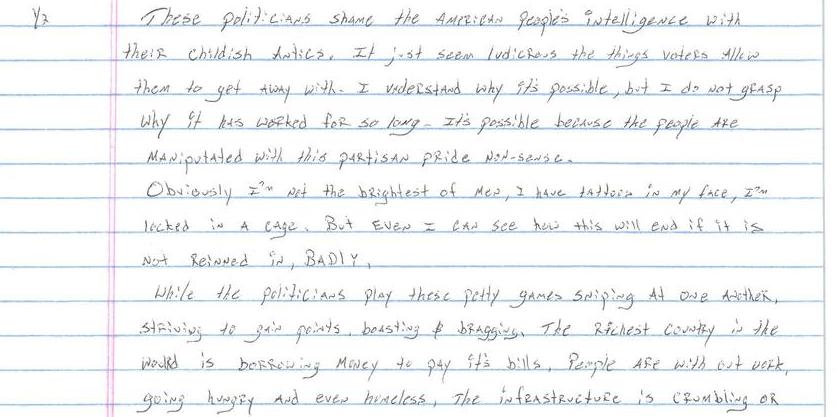 1/2 These politicians shame the American people's intelligence with
their childish antics. It just seem ludicrous the things voters allow
them to get away with. I understand why it's possible, but I do not grasp
why it has worked for so long. It's possible because the people are
manipulated with this partisan pride non-sense.
Obviously I'm not the brightest of men, I have tattoos in my face, I'm
locked in a cage. But even I can see how this will end if it is
not reinned in, BADLY,
While the politicians play these petty games sniping at one another,
striving to gain points, boasting & bragging, The Richest Country in the
world is borrowing money to pay it's bills, People are with out work,
going hungry and even homeless, The infrastructure is crumbling or